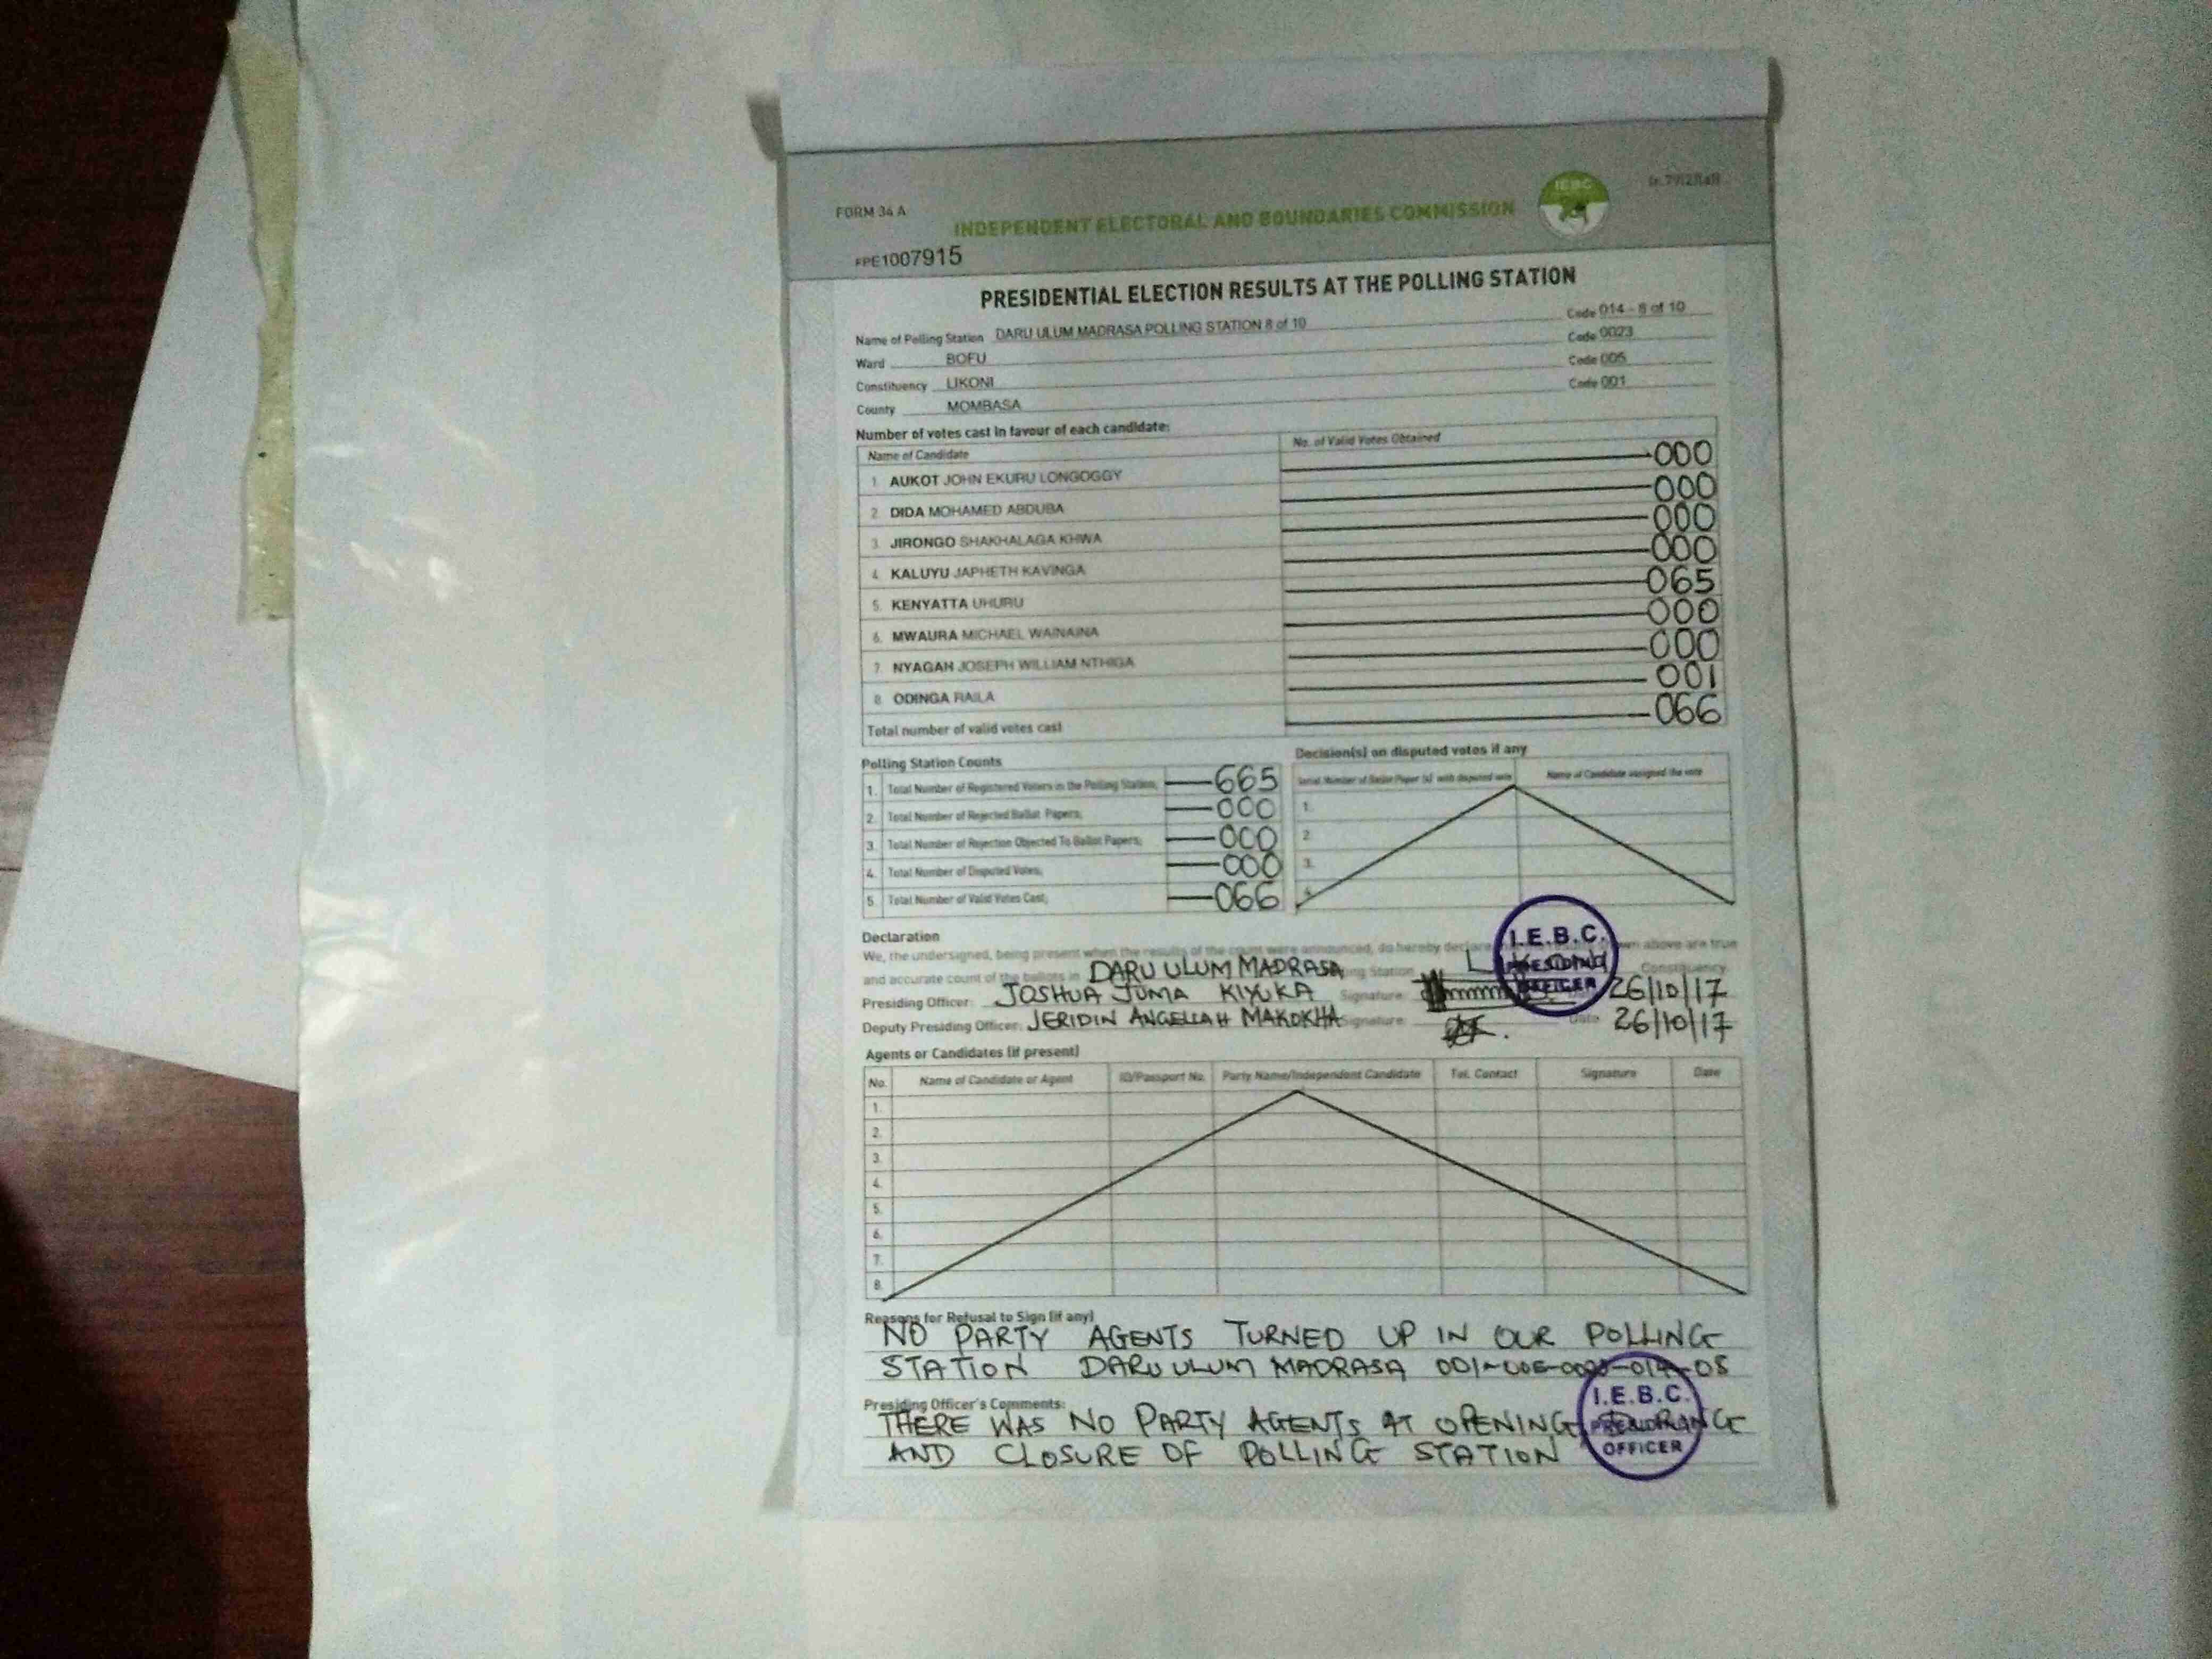 FORM 34 A
INDEPENDENT ELECTORAL AND BOUNDARIES COMMISSION
IEBC
FPE1007915
PRESIDENTIAL ELECTION RESULTS AT THE POLLING STATION
Name of Polling Station DARU ULUM MADRASA POLLING STATION 8 of 10 Code 014 - 8 of 10
Ward BOFU Code 0023
Constituency LIKONI Code 005
County MOMBASA Code 001
Number of votes cast in favour of each candidate:
Name of Candidate No. of Valid Votes Obtained
1. AUKOT JOHN EKURU LONGOGGY 000
2. DIDA MOHAMED ABDUBA 000
3. JIRONGO SHAKHALAGA KHWA 000
4. KALUYU JAPHETH KAVINGA 000
5. KENYATTA UHURU 065
6. MWAURA MICHAEL WAINAINA 000
7. NYAGAH JOSEPH WILLIAM NTHIGA 000
8. ODINGA RAILA 001
Total number of valid votes cast 066
Polling Station Counts
1. Total Number of Registered Voters in the Polling Station; 665
2. Total Number of Rejected Ballot Papers; 000
3. Total Number of Rejection Objected To Ballot Papers; 000
4. Total Number of Disputed Votes; 000
5. Total Number of Valid Votes Cast; 066
Decision(s) on disputed votes if any
Serial Number of Ballot Paper (s) with disputed vote Name of Candidate assigned the vote
1.
2.
3.
Declaration
We, the undersigned, being present when the results of the count were announced, do hereby declare above are true
and accurate count of the ballots in DARU ULUM MADRASA Polling Station Constituency
Presiding Officer: JOSHUA JUMA KIYUKA Signature: 26/10/17
Deputy Presiding Officer: JERIDIN ANGELLAH MAKOKHA Signature: Date 26/10/17
I.E.B.C.
PRESIDING
OFFICER
Agents or Candidates (if present)
No. Name of Candidate or Agent ID/Passport No. Party Name/Independent Candidate Tel. Contact Signature Date
1.
2.
3.
4.
5.
6.
7.
8.
Reasons for Refusal to Sign (if any)
NO PARTY AGENTS TURNED UP IN OUR POLLING
STATION DARU ULUM MADRASA
Presiding Officer's Comments:
THERE WAS NO PARTY AGENTS AT OPENING
AND CLOSURE OF POLLING STATION
I.E.B.C.
PRESIDING
OFFICER